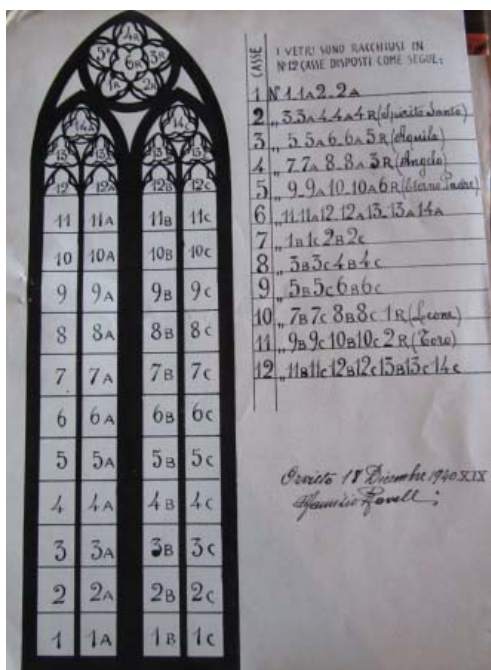 4R
5R 3R
6R
1R 2R
14A 14C
13 13A 13B 13C
12 12A 12B 12C
11 11A 11B 11C
10 10A 10B 10C
9 9A 9B 9C
8 8A 8B 8C
7 7A 7B 7C
6 6A 6B 6C
5 5A 5B 5C
4 4A 4B 4C
3 3A 3B 3C
2 2A 2B 2C
1 1A 1B 1C
CASSE
I VETRI SONO RACCHIUSI IN
Nº12 CASSE DISPOSTI COME SEGUE:
1 Nº 1.1A 2..2A
2 „ 3.3A 4.4A 4R (Spirito Santo)
3 „ 5.5A 6.6A 5R (Aquila)
4 „ 7.7A 8.8A 3R (Angelo)
5 „ 9-9A 10-10A 6R (Mano Padre)
6 „ 11.11A 12.12A 13-13A 14A
7 „ 1B 1C 2B 2C
8 „ 3B 3C 4B 4C
9 „ 5B 5C 6B 6C
10 „ 7B 7C 8B 8C 1R (Leone)
11 „ 9B 9C 10B 10C 2R (Toro)
12 „ 11B 11C 12B 12C 13B 13C 14C
Orvieto 18 Dicembre 1940 XIX